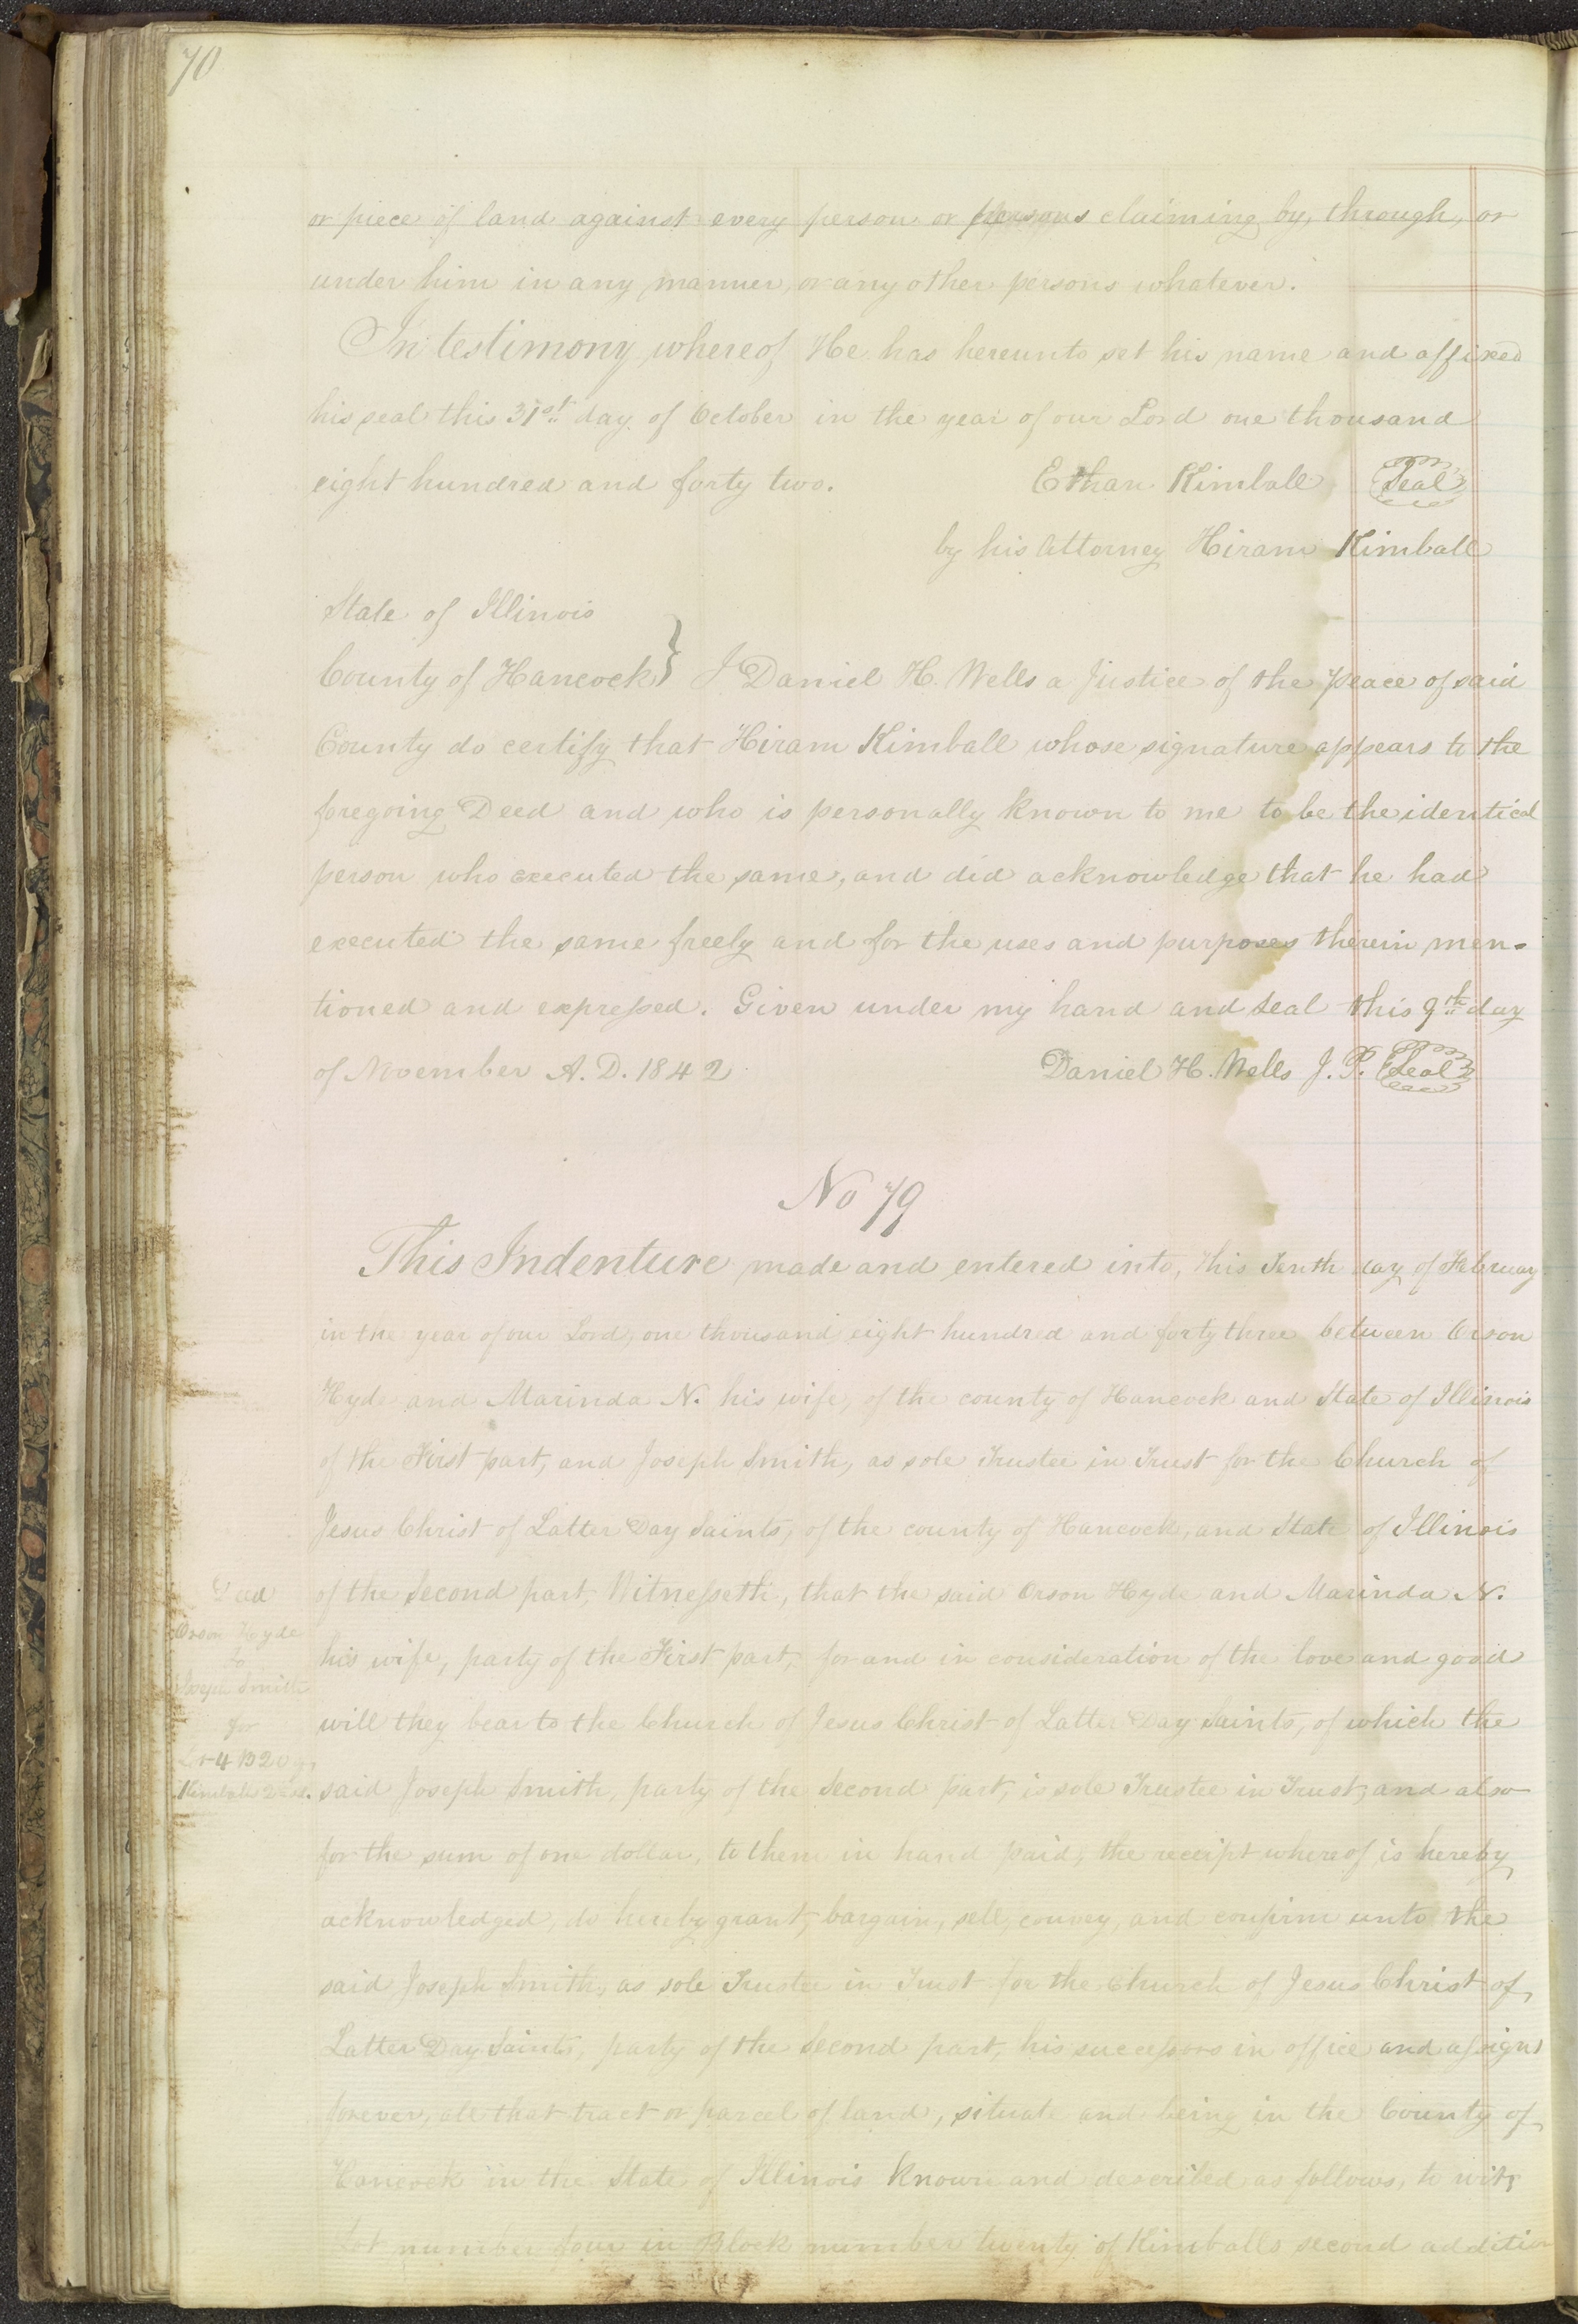 70
or piece of land against every person or persons claiming by, through, or
under him in any manner, or any other persons whatever.
In testimony whereof He has hereunto set his name and affixed
his seal this 31st day of October in the year of our Lord one thousand
eight hundred and forty two. Ethan Kimball Seal
by his Attorney Hiram Kimball
State of Illinois
County of Hancock } I Daniel H. Wells a Justice of the peace of said
County do certify that Hiram Kimball whose signature appears to the
foregoing Deed and who is personally known to me to be the identical
person who executed the same, and did acknowledge that he had
executed the same freely and for the uses and purposes therein men-
tioned and expressed. Given under my hand and seal this 9th day
of November A. D. 1842 Daniel H. Wells J. P. Seal
No 79
This Indenture made and entered into, this Tenth day of February
in the year of our Lord, one thousand eight hundred and forty three between Orson
Hyde and Marinda N. his wife, of the county of Hancock and State of Illinois
of the First part, and Joseph Smith, as sole Trustee in Trust for the Church of
Jesus Christ of Latter Day Saints, of the county of Hancock, and State of Illinois
of the Second part, Witnesseth, that the said Orson Hyde and Marinda N.
his wife, party of the First part, for and in consideration of the love and good
will they bear to the Church of Jesus Christ of Latter Day Saints, of which the
said Joseph Smith, party of the Second part, is sole Trustee in Trust, and also
for the sum of one dollar, to them in hand paid, the receipt whereof is hereby
acknowledged, do hereby grant, bargain, sell, convey, and confirm unto the
said Joseph Smith, as sole Trustee in Trust for the Church of Jesus Christ of
Latter Day Saints, party of the Second part, his successors in office and assigns
forever, all that tract or parcel of land, situate and being in the County of
Hancock in the State of Illinois known and described as follows, to wit;
Lot number four in Block number twenty of Kimballs second addition
Deed
Orson Hyde
to
Joseph Smith
for
Lot 4 B 20
Kimballs 2nd